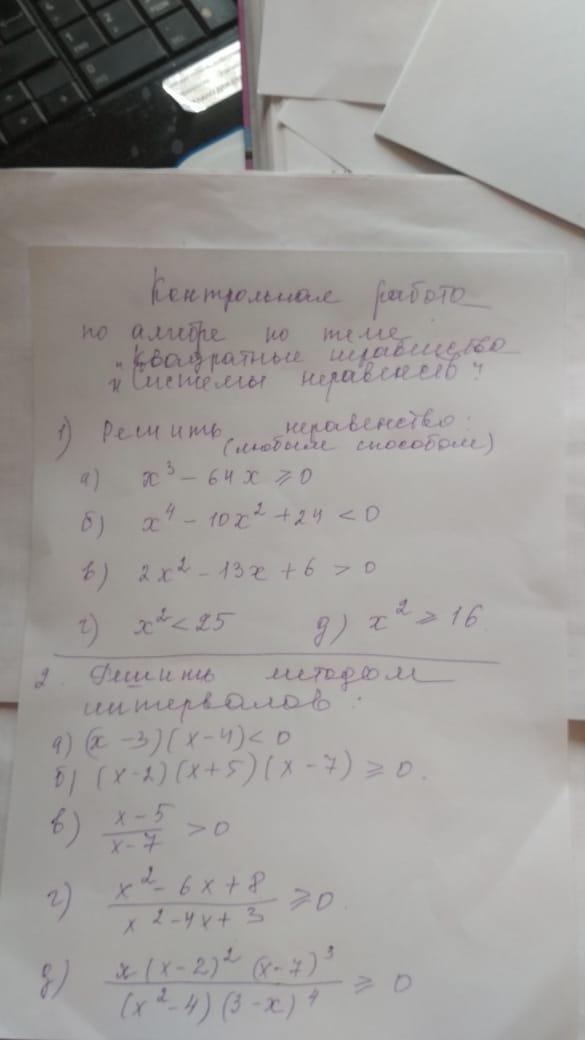 Контрольная работа
по алгебре по теме
„Квадратные неравенства
и „Системы неравенств"
1) Решить неравенство:
(любым способом)
а) x³ - 64x ⩾ 0
б) x⁴ - 10x² + 24 < 0
в) 2x² - 13x + 6 > 0
г) x² < 25 д) x² ⩾ 16
2. Решить методом
интервалов:
а) (x - 3)(x - 4) < 0
б) (x - 2)(x + 5)(x - 7) ⩾ 0.
в) (x - 5)/(x - 7) > 0
г) (x² - 6x + 8)/(x² - 4x + 3) ⩾ 0.
д) (x(x - 2)²(x - 7)³)/((x² - 4)(3 - x)⁴) ⩾ 0